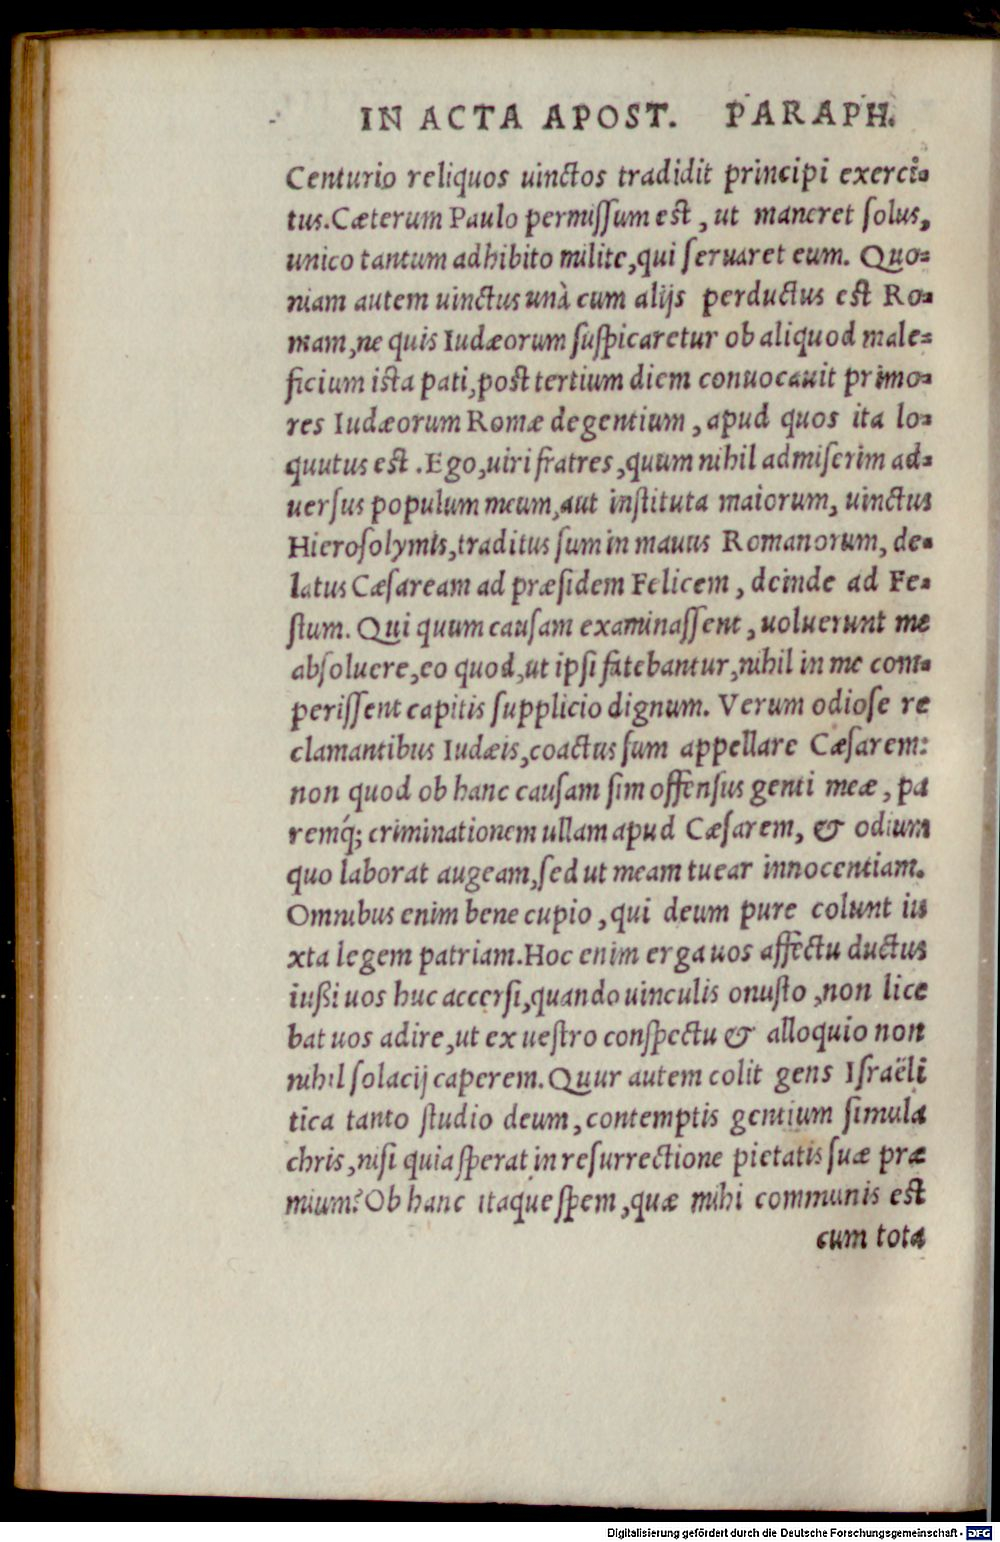 IN ACTA APOST. PARAPH.
Centurio reliquos uinctos tradidit principi exerci-
tus. Cæterum Paulo permiſſum est, ut maneret ſolus,
unico tantum adhibito milite, qui ſeruaret eum. Quo-
niam autem uinctus unà cum alijs perductus est Ro-
mam, ne quis Iudæorum ſuſpicaretur ob aliquod male-
ficium ista pati, post tertium diem conuocauit primo-
res Iudæorum Romæ degentium, apud quos ita lo-
quutus est. Ego, uiri fratres, quum nihil admiſerim ad-
uerſus populum meum, aut inſtituta maiorum, uinctus
Hieroſolymis, traditus ſum in manus Romanorum, de-
latus Cæſaream ad præſidem Felicem, deinde ad Fe-
ſtum. Qui quum cauſam examinaſſent, uoluerunt me
abſoluere, eo quod, ut ipſi fatebantur, nihil in me com-
periſſent capitis ſupplicio dignum. Verum odioſe re
clamantibus Iudæis, coactus ſum appellare Cæſarem:
non quod ob hanc cauſam ſim offenſus genti meæ, pa
remq́; criminationem ullam apud Cæſarem, & odium
quo laborat augeam, ſed ut meam tuear innocentiam.
Omnibus enim bene cupio, qui deum pure colunt iu
xta legem patriam. Hoc enim erga uos affectu ductus
iußi uos huc accerſi, quando uinculis onuſto, non lice
bat uos adire, ut ex ueſtro conſpectu & alloquio non
nihil ſolacij caperem. Quur autem colit gens Iſraëli
tica tanto ſtudio deum, contemptis gentium ſimula
chris, niſi quia ſperat in reſurrectione pietatis ſuæ præ
mium? Ob hanc itaque ſpem, quæ mihi communis est
cum tota
Digitalisierung gefördert durch die Deutsche Forschungsgemeinschaft - DFG